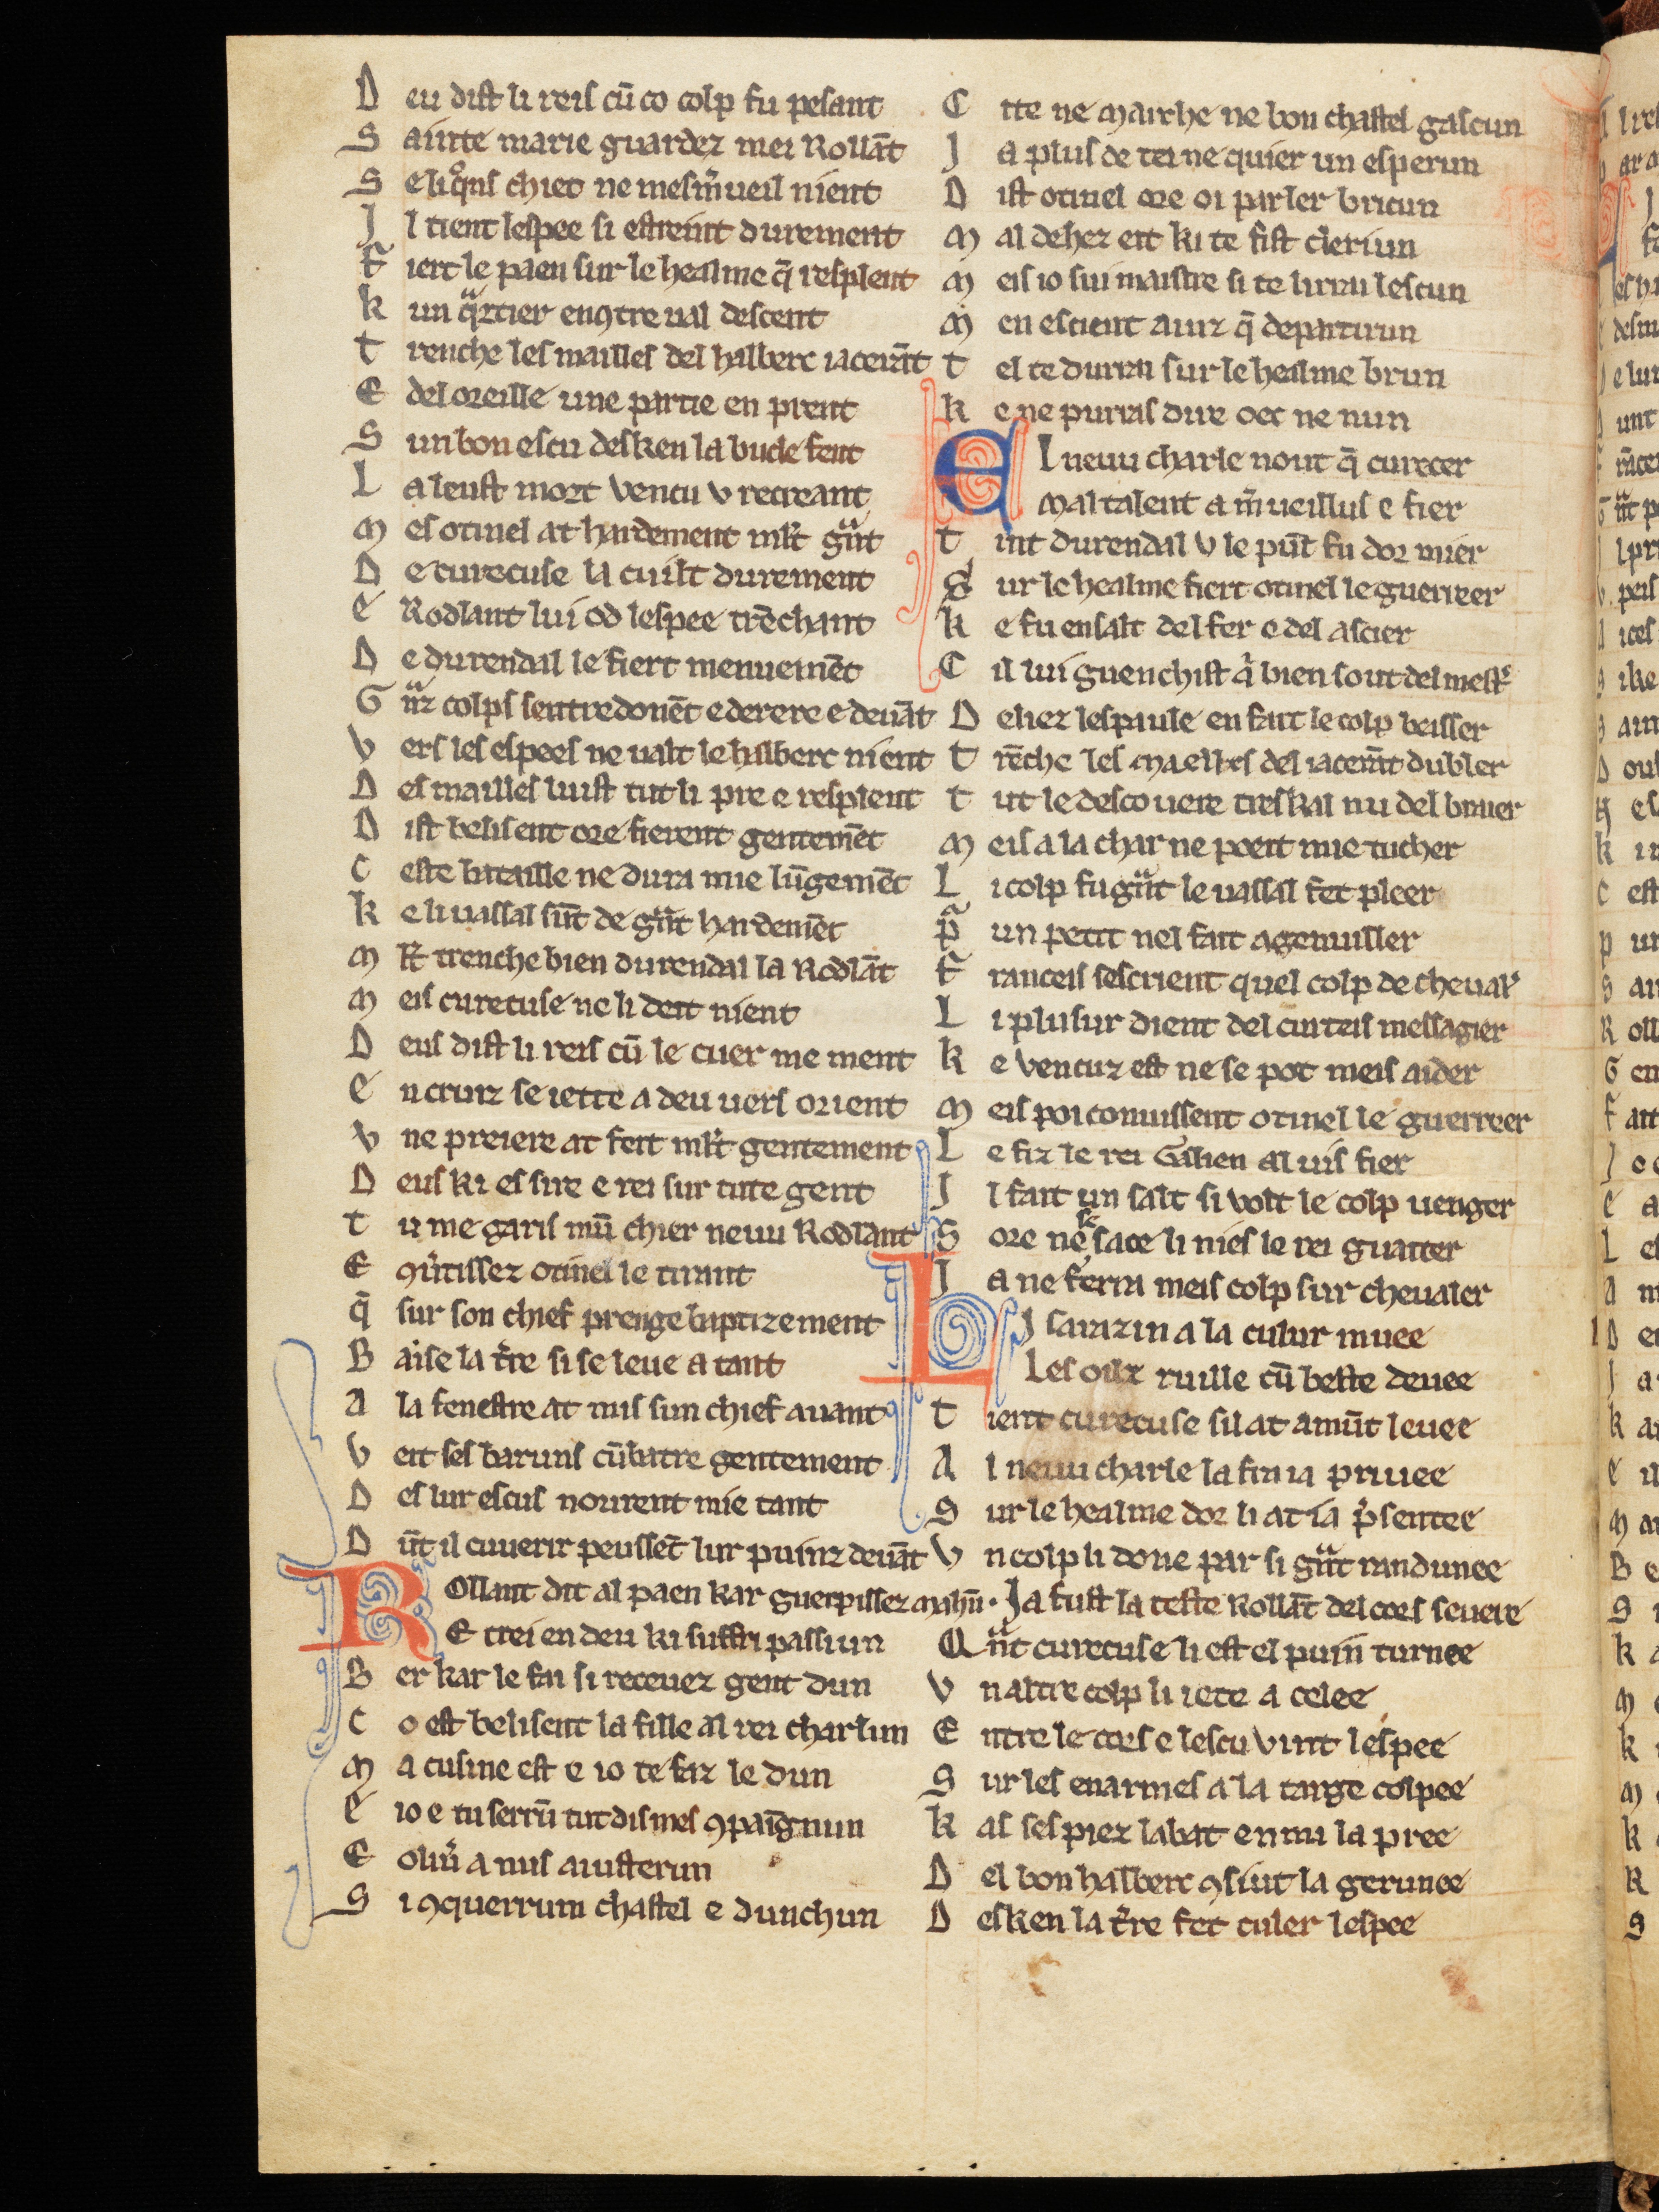 D eu dist li reis cū co colp fu pesant
S ainte marie guardez mei Rollāt
S e li qͦns chiet ne mesm̄ueil nient
J l tient lespee si estreint durement
F iert le paen sur le healme q̄ resplent
K un qͣrtier en ꝯtre ual descent
T renche les mailles del halberc iacerāt
E del oreille une partie en prent
S un bon escu desken la bucle fent
L a leust mort vencu v recreant
M es otinel at hardement ml̄t gͣnt
D e curecuse la cuilt durement
E Rodlant lui od lespee trēchant
D e durendal le fiert menuemēt
G ͣnz colps sentredonēt e derere e deuāt
V ers les espees ne ualt le halberc nient
D es mailles luist tut li pre e resplent
D ist belisent ore fierent gentemēt
C este bataille ne dura mie lūgemēt
K e li uassal sūt de gͣnt hardemēt
M l̄t trenche bien durendal la Rodlāt
M eis curecuse ne li deit nient
D eus dist li reis cū le cuer me ment
E n cruiz se iette a deu uers orient
V ne preiere at feit ml̄t gentement
D eus ki es sire e rei sur tute gent
T u me garis mū chier neuu Rodlant
E ꝯūtissez otinel le tirant
Q̄ sur son chief prenge baptizement
B aise la t̄re si se leue a tant
A la fenestre at mis sun chief auant
V eit ses baruns cūbatre gentement
D es lur escus nourent mie tant
D ūt il cuuerir peussēt lur puinz deuāt
R ollant dit al paen kar guerpissez mahū
E crei en deu ki suffri passiun
B er kar le fai si receuez gent dun
C o est belisent la fille al rei charlun
M a cusine est e io te faz le dun
E io e tu serrū tut dis mes ꝯpaīgnun
E oliū a nus aiusterun
S i ꝯquerrum chastel e dunchun
C ite ne marche ne bon chastel gascun
J a plus de tei ne quier un esperun
D ist otinel ore oi parler bricun
M al dehez eit ki te fist cleriun
M eis io sui maistre si te lirrai lescun
M en escient ainz q̄ departirun
T el te durrai sur le healme brun
K e ne purras dire oec ne nun
E l neuu charle nout q̄ curecer
Maltalent a m̄ueillus e fier
T int durendal v le pūt fu dor mier
S ur le healme fiert otinel le guerreer
K e fu ensalt del fer e del ascier
C il lui guenchist q̄ bien sout del mest̄
D eliez lespaule en fait le colp beisser
T rēche les mailles del iacerāt dubler
T ut le descouere tres kal nu del braier
M eis a la char ne poeit mie tucher
L i colp fu gͣnt le uassal fet pleer
P̄ un petit nel fait agenuiller
F ranceis sescrient quel colp de cheual̄
L i plusur dient del curteis messagier
K e vencuz est ne se pot meis aider
M eis poi conuissent otinel le guerreer
L e fiz le rei Galien al uis fier
J l fait un salt si volt le colp uenger
S ore ne se sace li nies le rei guaiter
J a ne ferra meis colp sur cheualer
L J sarazin a la culur muee
Les oilz ruille cū beste deuee
T ient curecuse sil at amūt leuee
A l neuu charle la fra ia priuee
S ur le healme dor li at ia p̄sentee
V n colp li done par si gͣnt randunee
Ja fust la teste Rollāt del cors seueree
Q ͣnt curecuse li est el puin turnee
V n altre colp li iete a celee
E ntre le cors e lescu vint lespee
S ur les enarmes a la targe colpee
K as ses piez labat enmi la pree
D el bon halberc ꝯsiut la gerunee
D esken la t̄re fet culer lespee